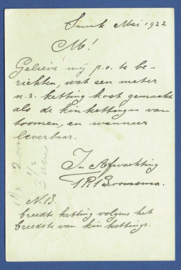 Sneek Mei 1922
M!
Gelieve mij p.o. te be-
richten, wat een meter
n.s. ketting kost gemaakt
als de kinkettingen van
toomen, en wanneer
leverbaar.
In Afwachting
N.B.
breedte ketting volgens het
breedste van kin ketting.